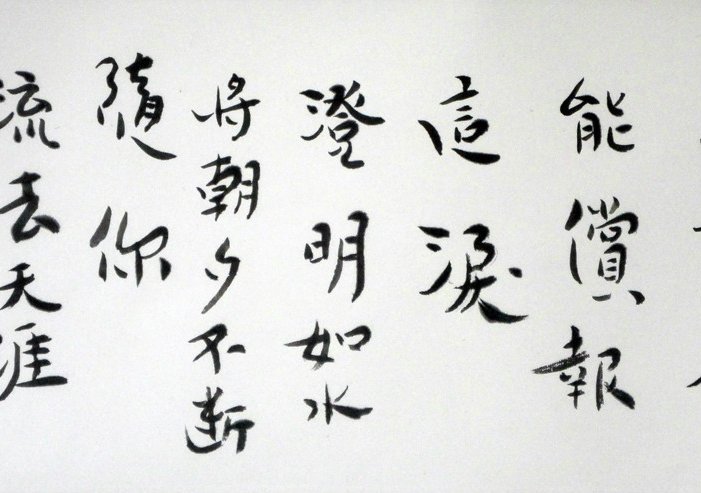 能償報
這淚
澄明如水
將朝夕不斷
隨你
流去天涯